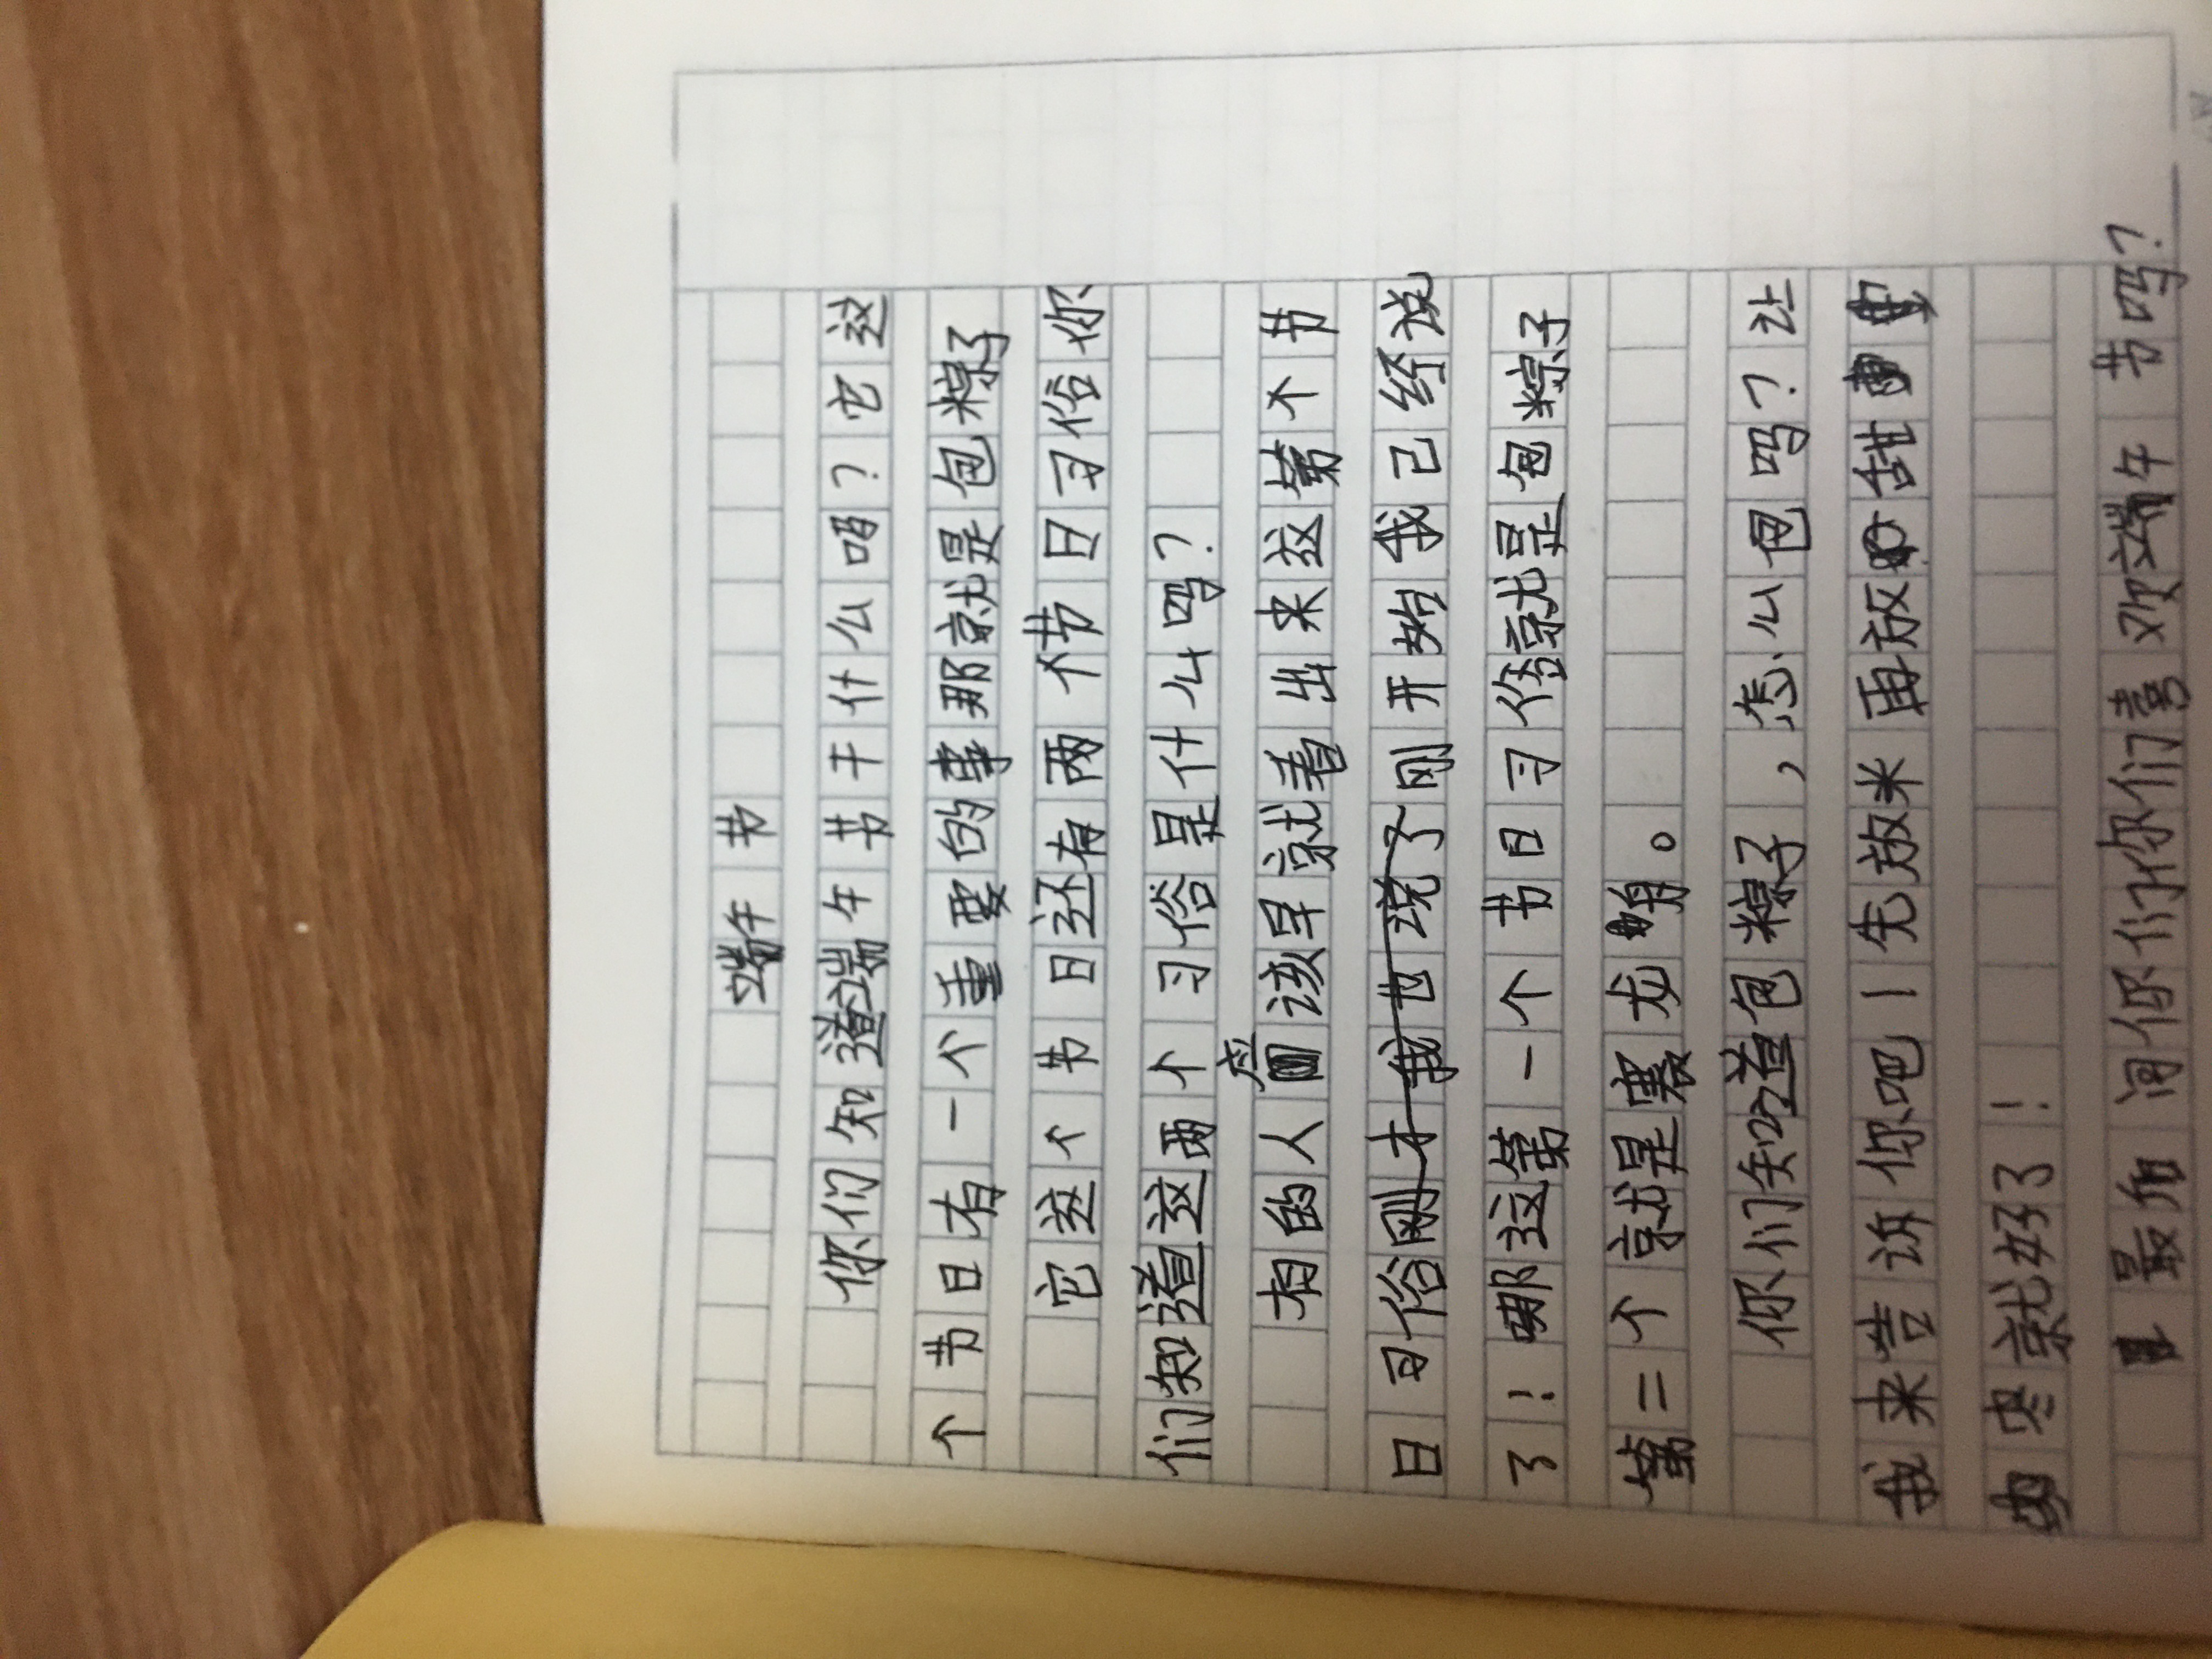 端午节
你们知道端午节干什么吗?它这
个节日有一个重要的事那就是包粽子
它这个节日还有两个节日习俗你
们知道这两个习俗是什么吗?
有的人应该早就看出来这第个节
日习俗刚才我也说了刚开始我已经说
了!哪这第一个节日习俗就是包粽子
第二个就是赛龙舟。
你们知道包粽子,怎么包吗?让
我来告诉你吧!先放米再放甜
枣就好了!
最后问你们你们喜欢端午节吗?